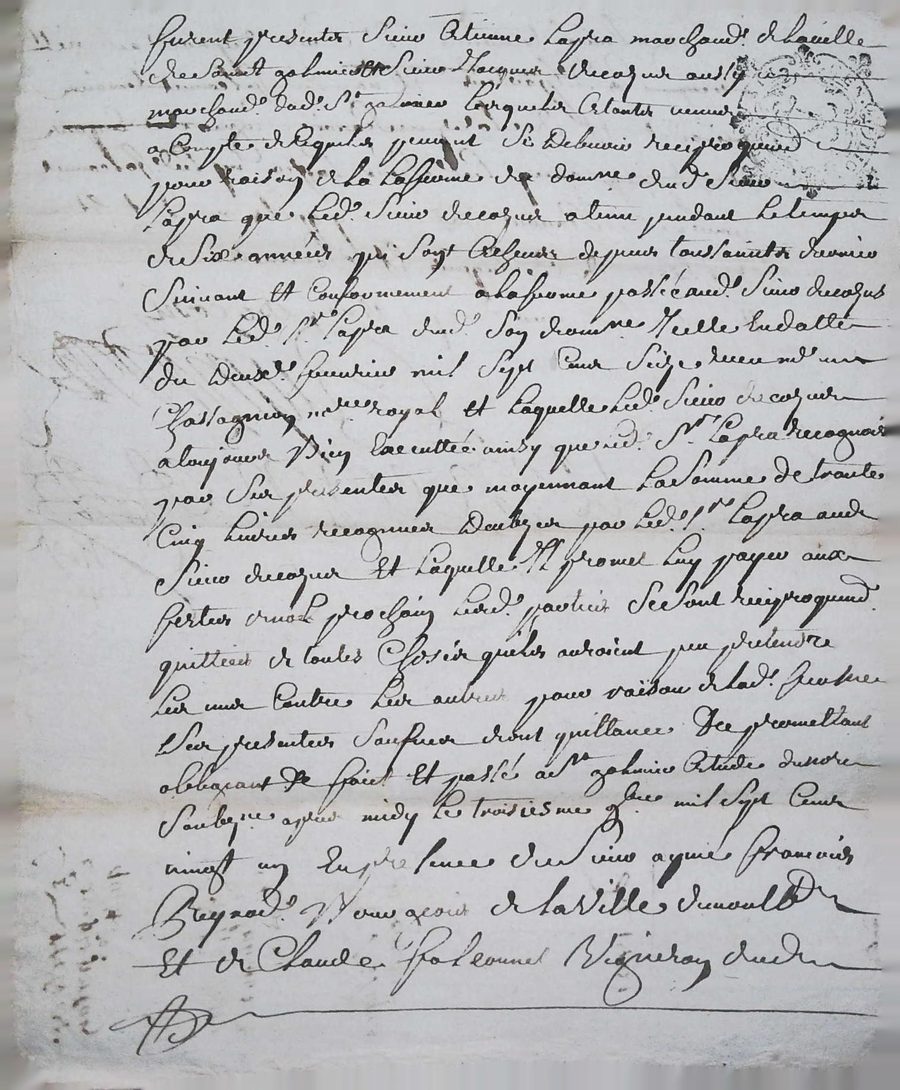 furent presents Sieur Etienne Lapra marchand. de la ville
de Saint galmier et Sieur Jacques decozur aussy
marchand. dud. St. galmier lesquels Estants venus
a Compte de ce quils peuvent Se Debvoir reciproquemt
pour raison de la Lafferme du domne. dud. Sieur
Lapra que Led. Sieur decozur a tenu pendant Le temps
de Six années qui sont Escheus depuis toussaints dernier
Suivant Et Conformement a Lafferme passée aud. Sieur decozur
par Led. Sr. Lapra dud. Son domne. Icelle En datte
du Deuxe. fevrier mil Sept Cens Seize receu me.
Chassagnion nre royal et Laquelle Led. Sieur decozur
a toujours Bien Executtée ainsy que led. Sr. Lapra recognoit
par Ses presentes que moyennant La Somme de trante
Cinq Livres recogneue Deube par Led. Sr. Lapra aud
Sieur decozur Et Laquelle Il promet Luy payer aux
festes de noel prochain Lesd. parties Se Sont reciproquemd.
quittées de toutes Choses quils auroient peu pretendre
Les uns Contre Les autres pour raison de Lad. ferme
Les presentes dont quittance De promettant
obligeant De faict Et passé a St galmier Estude du nore
Soubsne. apres midy Le troisiesme 9bre mil Sept Cens
vingt un En presence de Sieur aymé françois
Reynod. Bourgeois de La Ville de
Et de Claude falconnet Vigneron dud